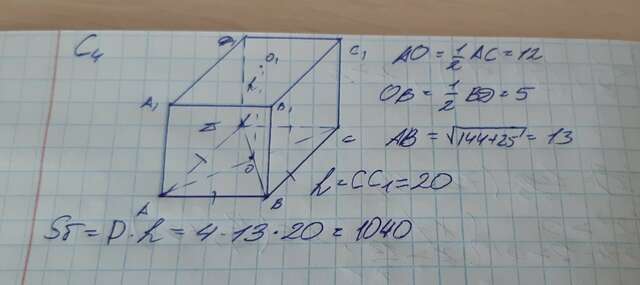 C₄
D₁
C₁
O₁
h
A₁
B₁
C
O
A
B
AO = 1/2 AC = 12
OB = 1/2 BD = 5
AB = √144+25 = 13
h = CC₁ = 20
Sб = P · h = 4 · 13 · 20 = 1040